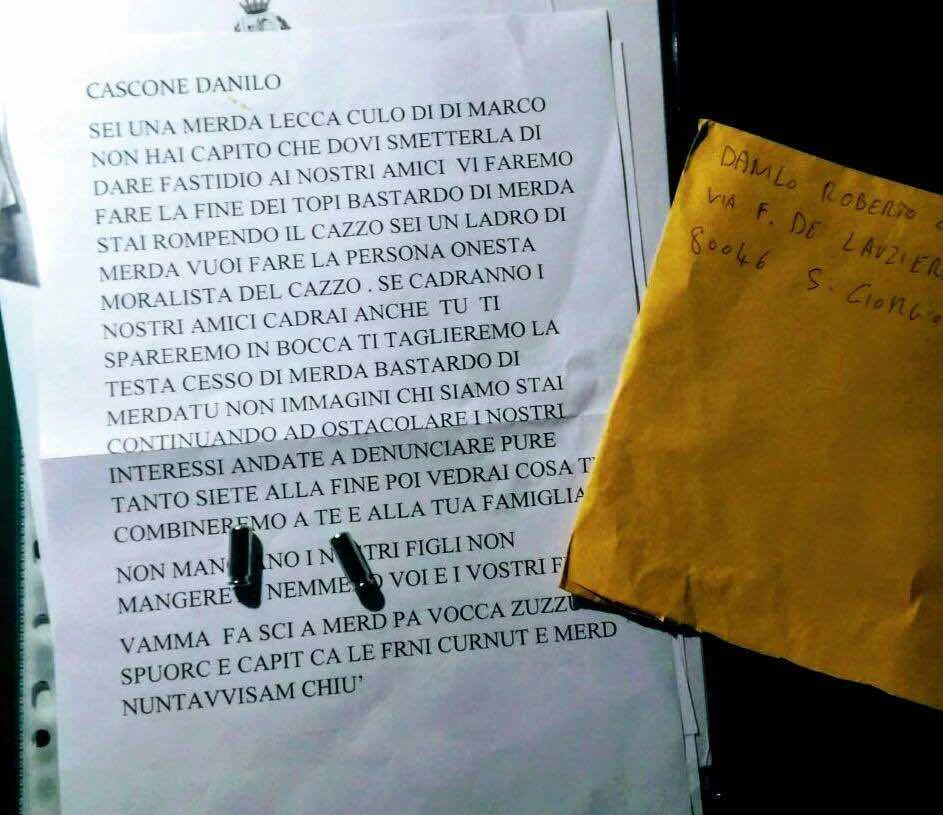 CASCONE DANILO
SEI UNA MERDA LECCA CULO DI DI MARCO
NON HAI CAPITO CHE DOVI SMETTERLA DI
DARE FASTIDIO AI NOSTRI AMICI VI FAREMO
FARE LA FINE DEI TOPI BASTARDO DI MERDA
STAI ROMPENDO IL CAZZO SEI UN LADRO DI
MERDA VUOI FARE LA PERSONA ONESTA
MORALISTA DEL CAZZO . SE CADRANNO I
NOSTRI AMICI CADRAI ANCHE TU TI
SPAREREMO IN BOCCA TI TAGLIEREMO LA
TESTA CESSO DI MERDA BASTARDO DI
MERDATU NON IMMAGINI CHI SIAMO STAI
CONTINUANDO AD OSTACOLARE I NOSTRI
INTERESSI ANDATE A DENUNCIARE PURE
TANTO SIETE ALLA FINE POI VEDRAI COSA
COMBINEREMO A TE E ALLA TUA FAMIGLIA
NON I FIGLI NON
VOI E I VOSTRI
VAMMA FA SCI A MERD PA VOCCA
SPUORC E CAPIT CA LE FRNI CURNUT E MERD
NUNTAVVISAM CHIU'
DANILO ROBERTO
VIA F. DE
80046 S. GIORGIO